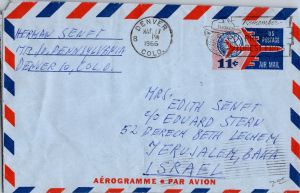 HERMAN SENFT
1170 PENNSYLVANIA
DENVER 10, COLO.
DENVER
1966
COLO.
Remember
US POSTAGE
11¢
AIR MAIL
MRS.
EDITH SENFT
c/o EDUARD STERN
52 DERECH BETH LECHEM
JERUSALEM, BAKA
ISRAEL
AÉROGRAMME • PAR AVION